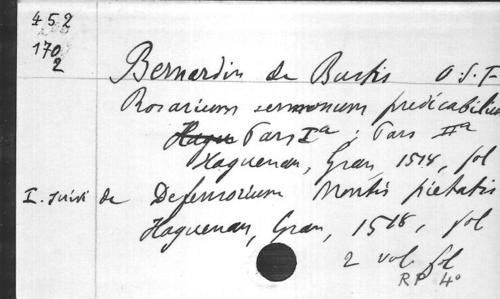 452
170
2
Bernardin de Bustis O.S.F
Rosarium sermonum predicabilium
Hague Pars Iª ; Pars IIª
Haguenau, Gran, 1518, fol
I. suivi de Defensorium Montis pietatis
Haguenau, Gran, 1518, fol
2 vol fol
RP 4º